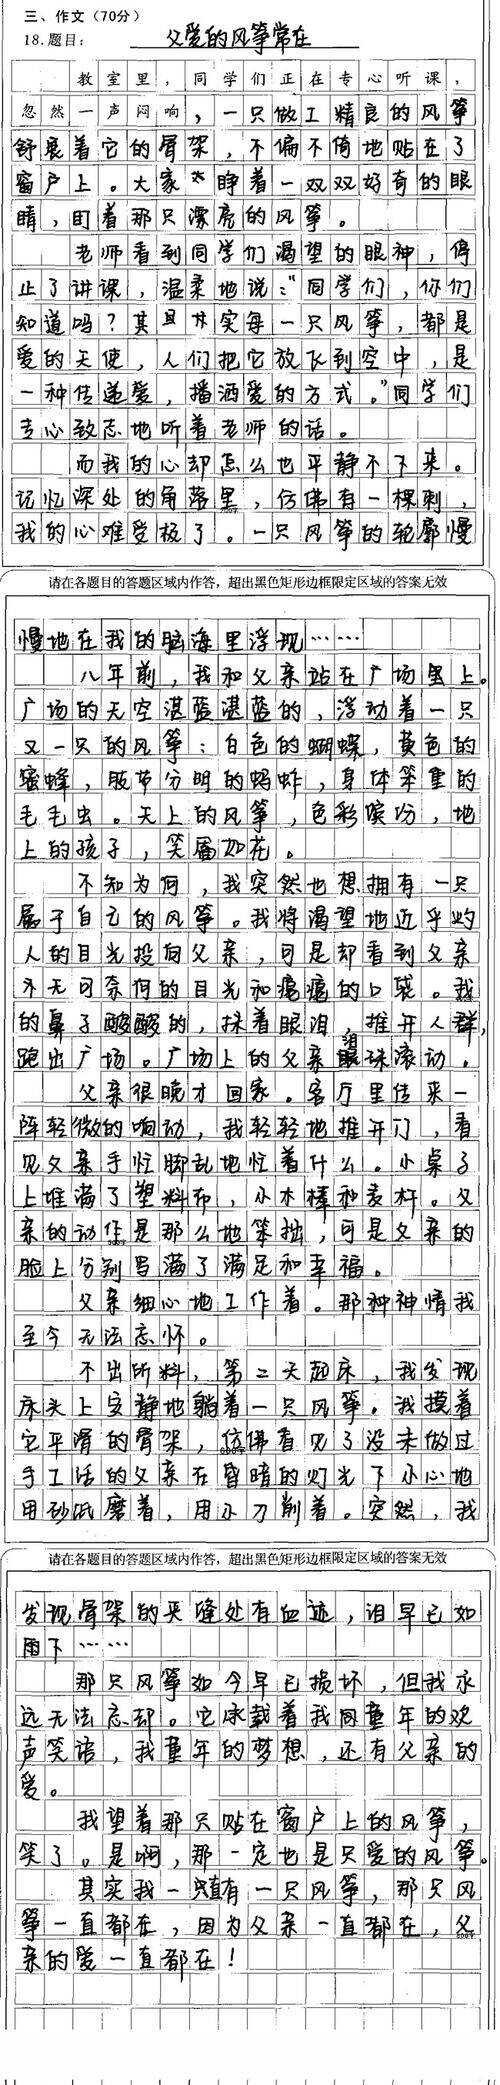 三、作文（70分）
18.题目：父爱的风筝常在
教室里，同学们正在专心听课，
忽然一声闷响，一只做工精良的风筝
舒展着它的骨架，不偏不倚地贴在了
窗户上。大家睁着一双双好奇的眼
睛，盯着那只漂亮的风筝。
老师看到同学们渴望的眼神，停
止了讲课，温柔地说：“同学们，你们
知道吗？其实每一只风筝，都是
爱的天使，人们把它放飞到空中，是
一种传递爱，播洒爱的方式。”同学们
专心致志地听着老师的话。
而我的心却怎么也平静不下来。
记忆深处的角落里，仿佛有一棵刺，
我的心难受极了。一只风筝的轮廓慢
请在各题目的答题区域内作答，超出黑色矩形边框限定区域的答案无效
慢地在我的脑海里浮现……
八年前，我和父亲站在广场上。
广场的天空湛蓝湛蓝的，浮动着一只
又一只的风筝：白色的蝴蝶，黄色的
蜜蜂，肢节分明的蚂蚱，身体笨重的
毛毛虫。天上的风筝，色彩缤纷，地
上的孩子，笑靥如花。
不知为何，我突然也想拥有一只
属于自己的风筝。我将渴望地近乎灼
人的目光投向父亲，可是却看到父亲
无可奈何的目光和瘪瘪的口袋。我
的鼻子酸酸的，抹着眼泪，推开人群，
跑出广场。广场上的父亲泪珠滚动。
父亲很晚才回家。客厅里传来一
阵轻微的响动，我轻轻地推开门，看
见父亲手忙脚乱地忙着什么。小桌子
上堆满了塑料布，小木棒和麦秆。父
亲的动作是那么地笨拙，可是父亲的
脸上分别写满了满足和幸福。
父亲细心地工作着。那种神情我
至今无法忘怀。
不出所料，第二天起床，我发现
床头上安静地躺着一只风筝。我摸着
它平滑的骨架，仿佛看见了没未做过
手工活的父亲在昏暗的灯光下小心地
用砂纸磨着，用小刀削着。突然，我
请在各题目的答题区域内作答，超出黑色矩形边框限定区域的答案无效
发现骨架的夹缝处有血迹，泪早已如
雨下……
那只风筝如今早已损坏，但我永
远无法忘却。它承载着我同童年的欢
声笑语，我童年的梦想，还有父亲的
爱。
我望着那只贴在窗户上的风筝，
笑了。是啊，那一定也是只爱的风筝。
其实我一直有一只风筝，那只风
筝一直都在，因为父亲一直都在，父
亲的爱一直都在！